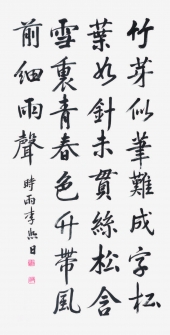 竹芽似筆難成字松
葉如針未貫絲松含
雪裏青春色竹帶風
前細雨聲
時雨李熙日